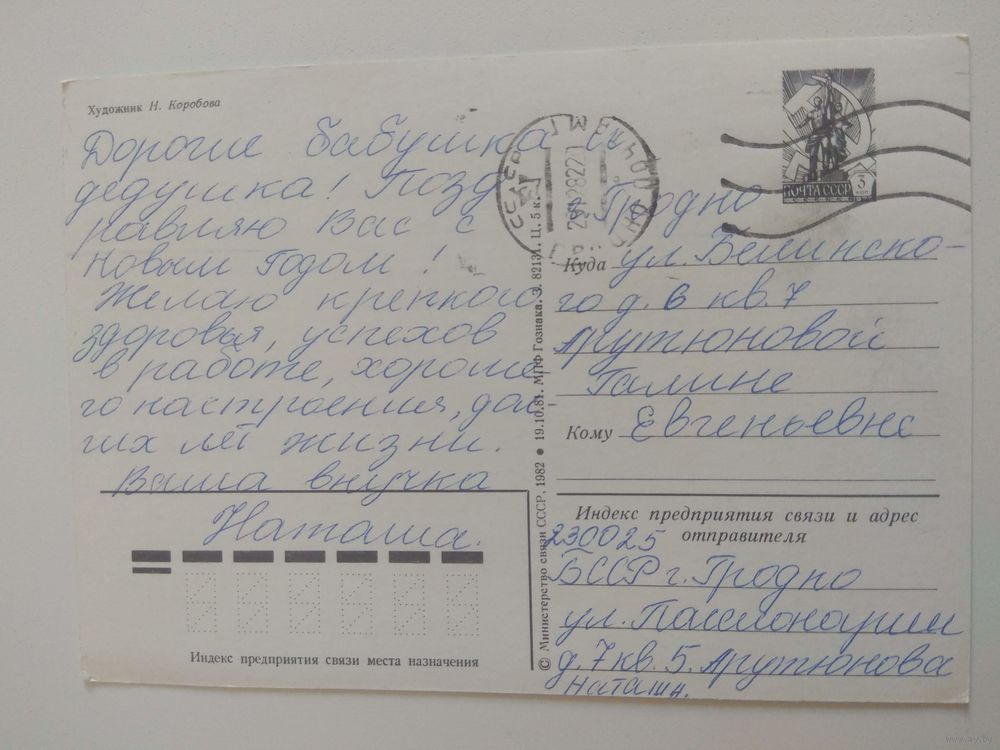 Художник Н. Коробова
Дорогие бабушка и
дедушка! Позд-
равляю Вас с
Новым Годом!
Желаю крепкого
здоровья, успехов
в работе, хороше-
го настроения, дол-
гих лет жизни.
Ваша внучка
Наташа.
Индекс предприятия связи места назначения
© Министерство связи СССР, 1982 • 19.10.81. МПФ Гознака. З. 82131. Ц. 5 к.
ПОЧТА СССР 3
КОП
г. Гродно
Куда ул. Белинско-
го д. 6 кв. 7
Арутюновой
Галине
Кому Евгеньевне
Индекс предприятия связи и адрес
отправителя
230025
БССР г. Гродно
ул.
д. 7 кв. 5. Арутюнова
Наташи.